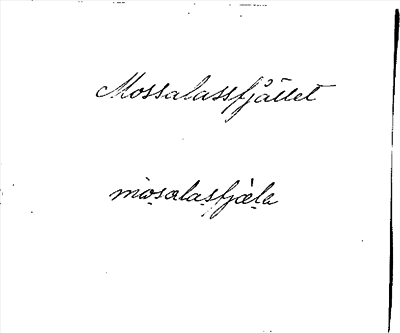 Mossalassfjället
mosalasfjæle